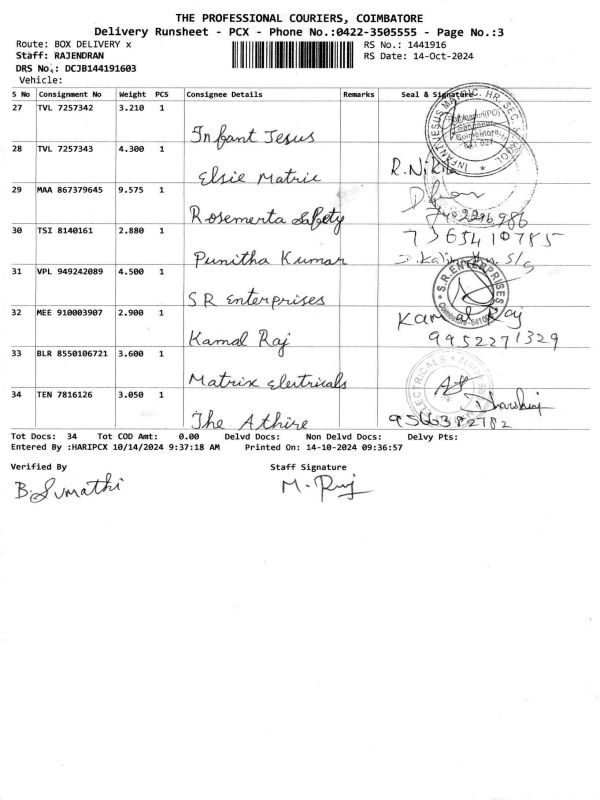 THE PROFESSIONAL COURIERS, COIMBATORE
Delivery Runsheet - PCX - Phone No.:0422-3505555 - Page No.:3
Route: BOX DELIVERY x
RS No.: 1441916
Staff: RAJENDRAN
RS Date: 14-Oct-2024
DRS No.: DCJB144191603
Vehicle:
S No Consignment No Weight PCS Consignee Details Remarks Seal & Signature
27 TVL 7257342 3.210 1
Infant Jesus
28 TVL 7257343 4.300 1
Elsie Matric
29 MAA 867379645 9.575 1
Rosemerta Safety
30 TSI 8140161 2.880 1
7365410785
Punitha Kumar
31 VPL 949242089 4.500 1
S.R.ENTERPRISES
SR Enterprises
32 MEE 910003907 2.900 1
Kamal Raj
Kamal Raj
9952271329
33 BLR 8550106721 3.600 1
Matrix electricals
34 TEN 7816126 3.050 1
The Athire
9566382782
Tot Docs: 34 Tot COD Amt: 0.00 Delvd Docs: Non Delvd Docs: Delvy Pts:
Entered By :HARIPCX 10/14/2024 9:37:18 AM Printed On: 14-10-2024 09:36:57
Verified By Staff Signature
B.Sumathi